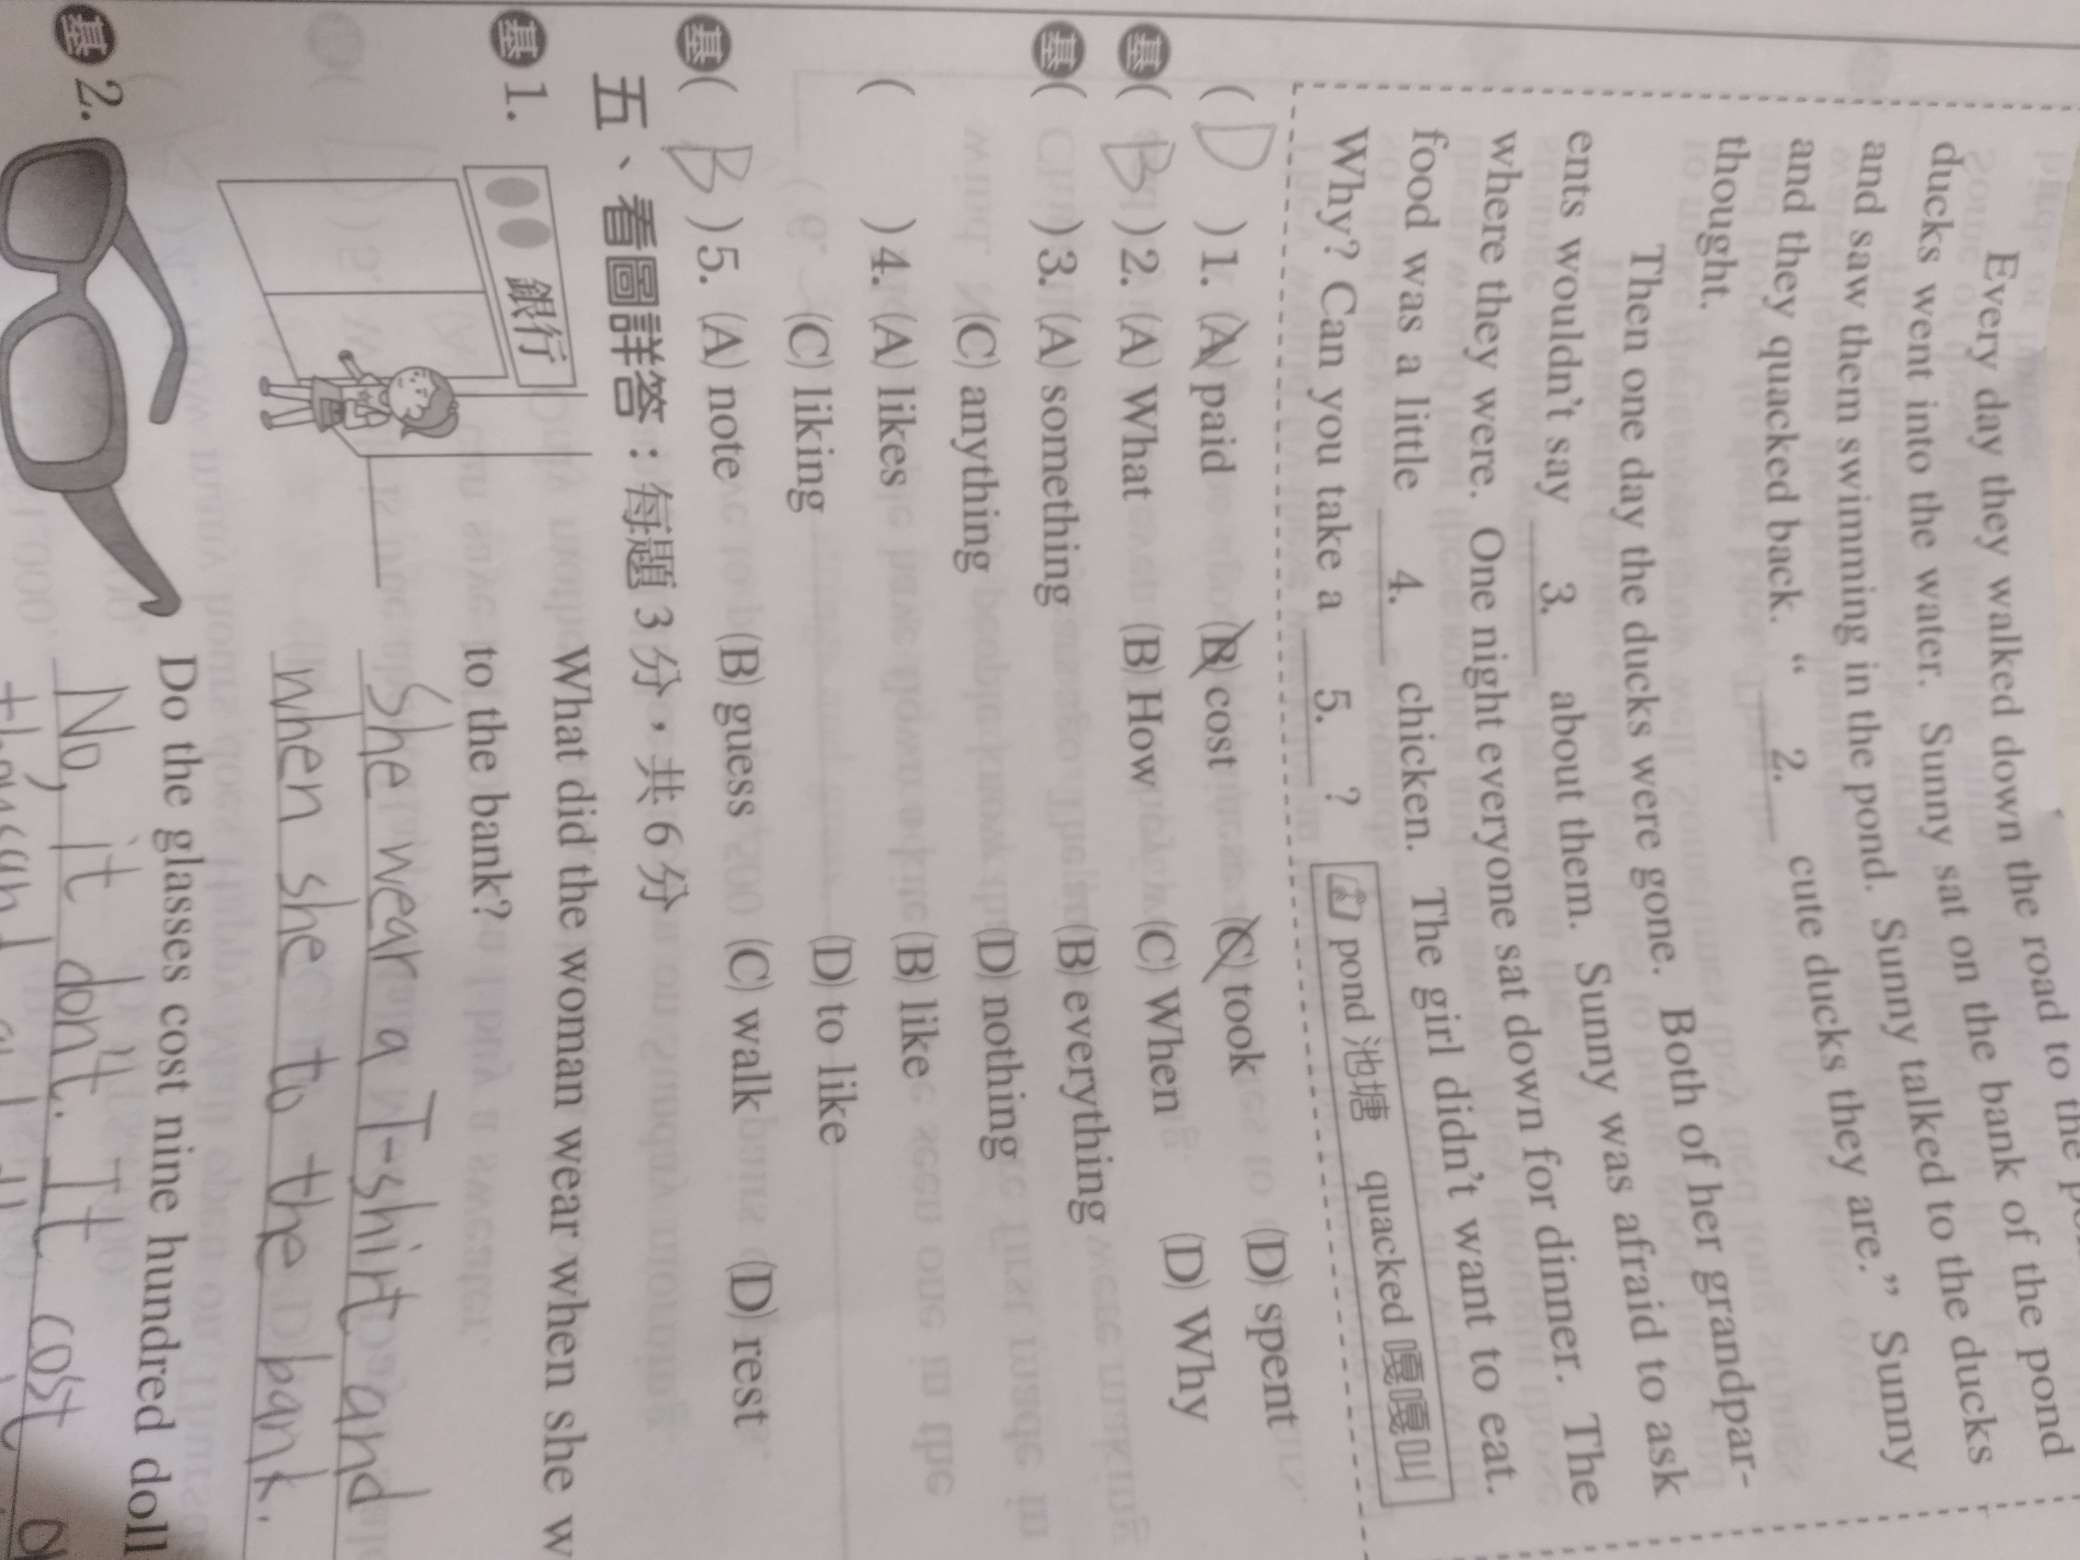 Every day they walked down the road to the
ducks went into the water. Sunny sat on the bank of the pond
and saw them swimming in the pond. Sunny talked to the ducks
and they quacked back. “ 2. cute ducks they are.” Sunny
thought.
Then one day the ducks were gone. Both of her grandpar-
ents wouldn't say 3. about them. Sunny was afraid to ask
where they were. One night everyone sat down for dinner. The
food was a little 4. chicken. The girl didn't want to eat.
Why? Can you take a 5. ?
pond 池塘 quacked 嘎嘎叫
( D ) 1. (A) paid (B) cost (C) took (D) spent
基 ( B ) 2. (A) What (B) How (C) When (D) Why
基 ( ) 3. (A) something (B) everything
(C) anything (D) nothing
( ) 4. (A) likes (B) like
(C) liking (D) to like
基 ( B ) 5. (A) note (B) guess (C) walk (D) rest
五、看圖詳答：每題 3 分，共 6 分
基 1. 銀行 What did the woman wear when she w
to the bank?
She wear a T-shirt and
when she to the bank.
基 2. Do the glasses cost nine hundred doll
No, it don't. It cost